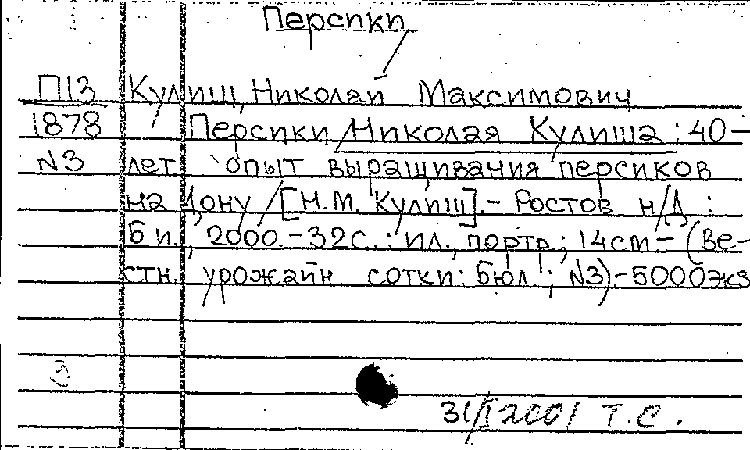 Персики
П13 Кулиш, Николай Максимович
1878 Персики Николая Кулиша : 40-
N3 лет. опыт выращивания персиков
на Дону / [Н.М. Кулиш]. - Ростов н/Д :
Б.и., 2000. - 32с. : ил., портр.; 14см. - (Ве-
стн. урожайн сотки: бюл.; N3) - 5000экз
31/I 2001 Т.С.